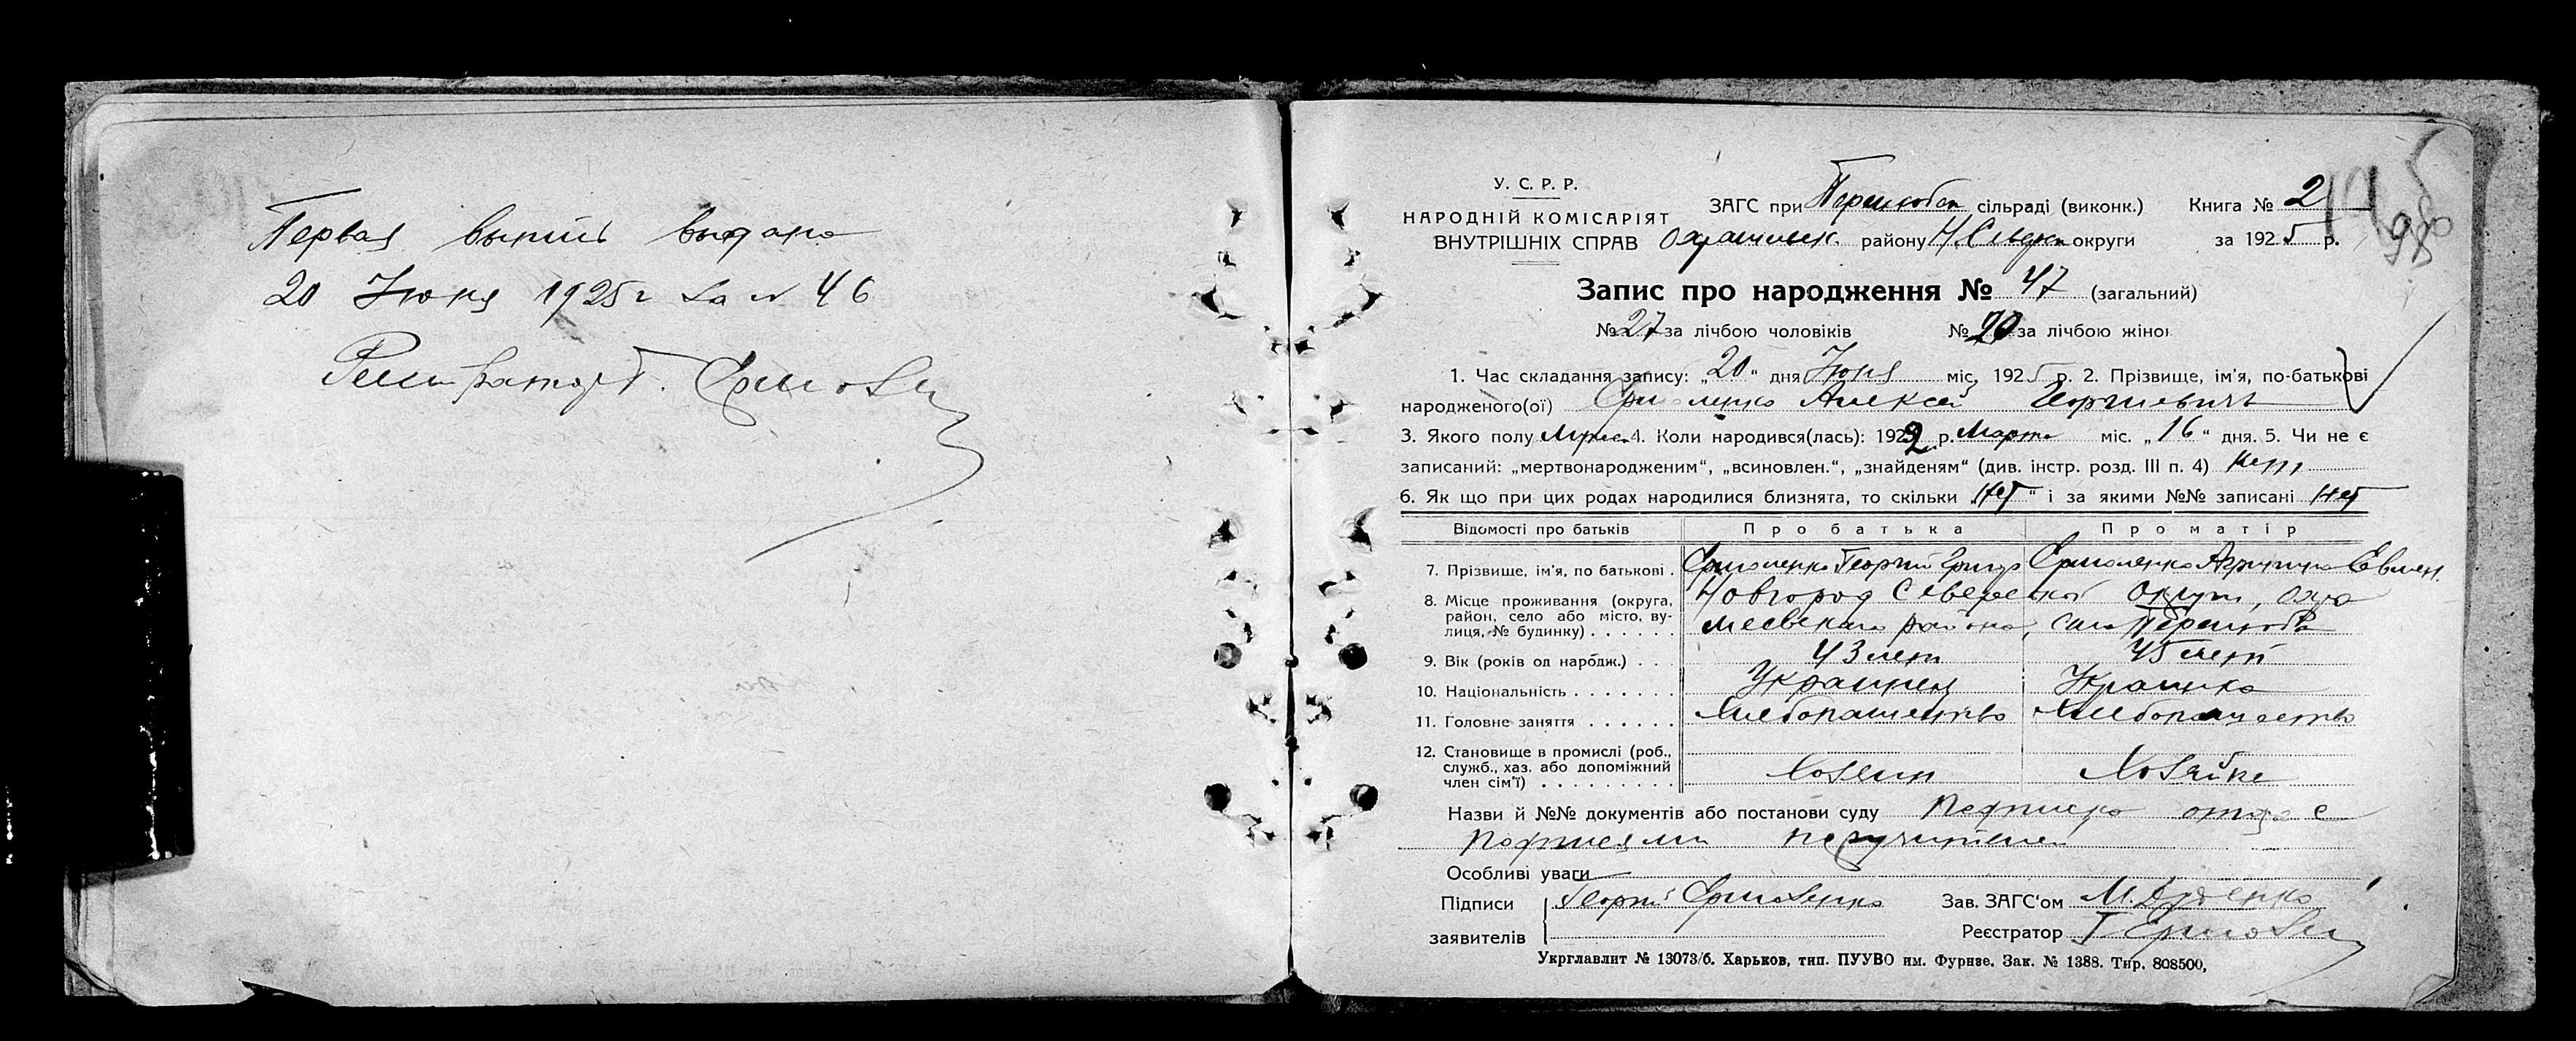 Первая выпись выдана
20 Июня 1925 г за № 46
Регистратор
У. С. Р. Р.
НАРОДНІЙ КОМІСАРІЯТ
ВНУТРІШНІХ СПРАВ
ЗАГС при Перелюбск сільраді (виконк.) Книга № 2
району Н. Северск округи за 1925 р.
Запис про народження № 47 (загальний)
№ 27 за лічбою чоловіків № 20 за лічбою жінок
1. Час складання запису: „20“ дня Июня міс. 1925 р. 2. Прізвище, ім'я, по-батькові
народженого(ої) Ермоленко Алексей Георгиевич
3. Якого полу Мужс. 4. Коли народився(лась): 1922 р. Марта міс. „16“ дня. 5. Чи не є
записаний: „мертвонародженим“, „всиновлен.“, „знайденям“ (див. інстр. розд. III п. 4) нет
6. Як що при цих родах народилися близнята, то скільки „нет“ і за якими №№ записані нет
Відомості про батьків Про батька Про матір
7. Прізвище, ім'я, по батькові . Ермоленко Георгий Григор Ермоленко Евмен.
8. Місце проживання (округа, район, село або місто, вулиця, № будинку) . . . . . . Новгород Северской округи,
района, село Перелюб
9. Вік (років од народж.) . . . 43 лет 45 лет
10. Національність . . . . . . . Украинец Украинка
11. Головне заняття . . . . . . Хлебопашество Хлебопашество
12. Становище в промислі (роб., служб., хаз. або допоміжний член сім'ї) . . . . . . . . . Хозяин Хозяйка
Назви й №№ документів або постанови суду Подписка отца с
подписями поручителей
Особливі уваги
Підписи Георгий Ермоленко Зав. ЗАГС'ом М.
заявителів Реєстратор
Укрглавлит № 13073/б. Харьков, тип. ПУУВО им. Фрунзе. Зак. № 1388. Тир. 808500,